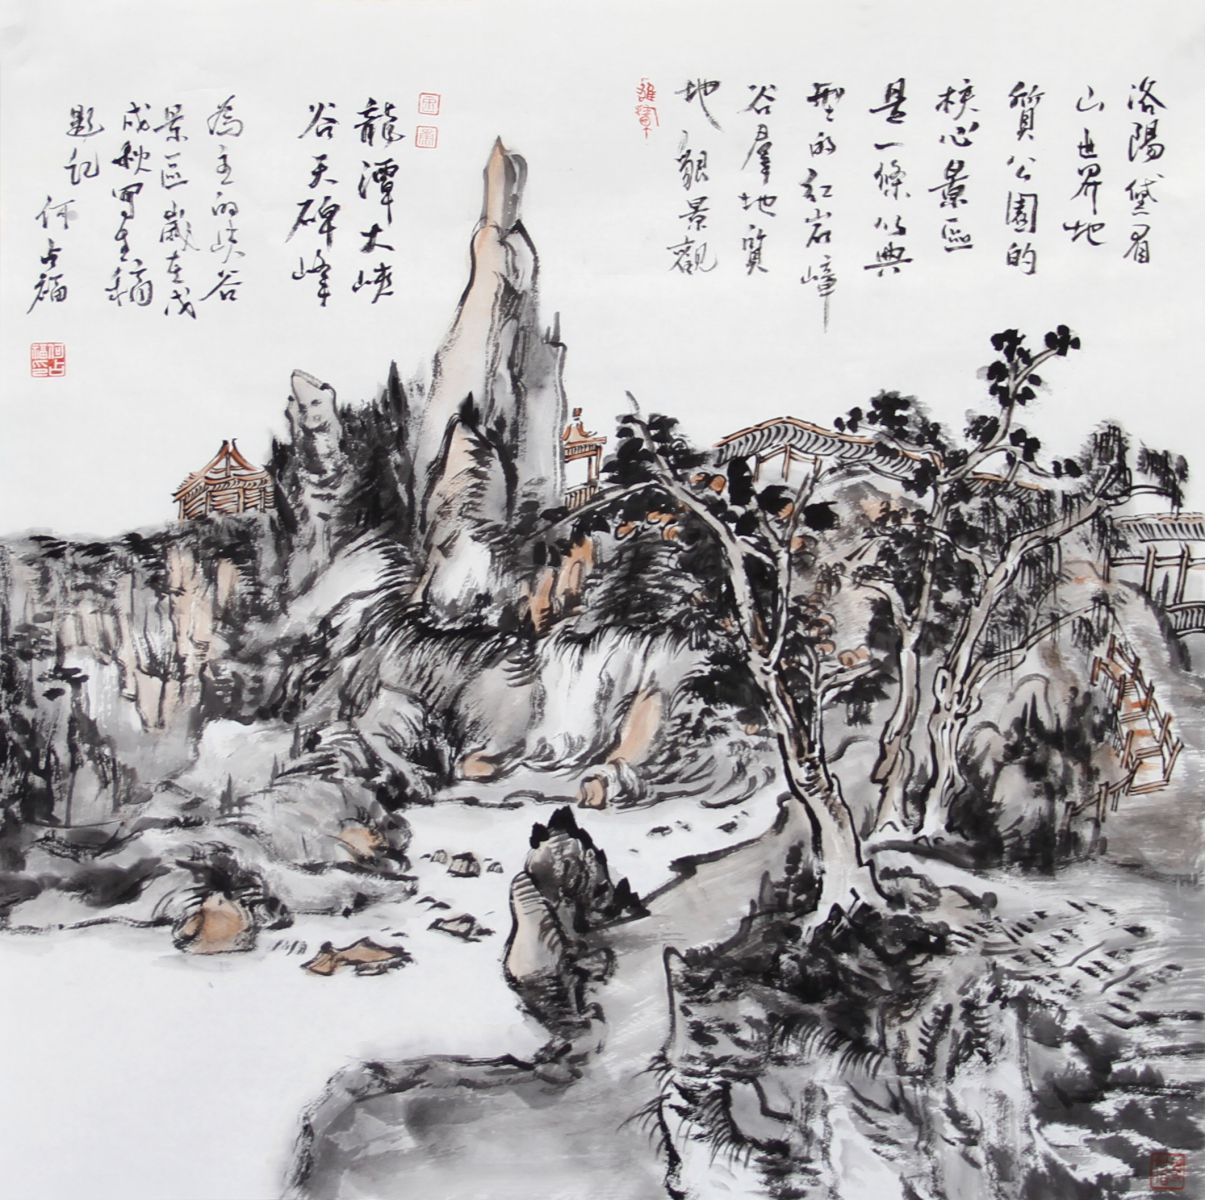 洛陽黛眉
山世界地
質公園的
核心景區
是一條以典
型的紅岩嶂
谷羣地質
地貌景觀
龍潭大峽
谷天碑峰
為主的峽谷
景區歲在戊
戌秋寫生稿
題記
何占福
何占福印